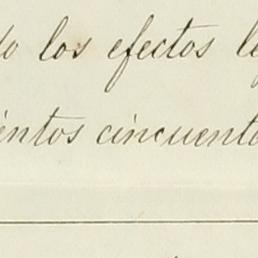 do los efectos le
entos cincuenta